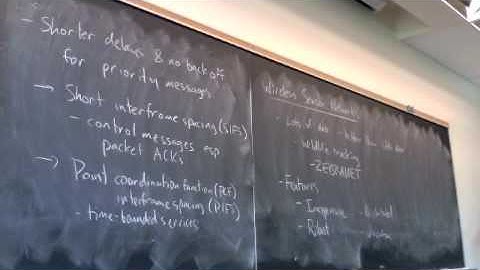 - Shorter delays & no backoff
for priority messages
→ Short interframe spacing (SIFS)
- control messages esp
packet ACKs
→ Point coordination function (PCF)
interframe spacing (PIFS)
- time-bounded services
Wireless Sensor Networks
- Lots of data
- wildlife tracking
- ZEBRANET
- Features
- Inexpensive
- Robust